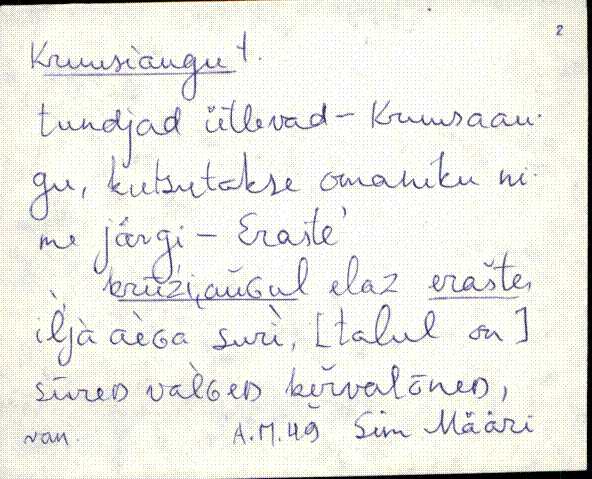 2
Kruusiaugu t.
tundjad ütlevad – Kruusaau-
gu, kutsutakse omaniku ni-
me järgi – Eraste'
krūźi,aùɢul elaz erašte,
ìljà aèɢa surì, [talul on]
sūreᴅ valɢeᴅ kẽrvalōneᴅ,
van. A.M.49 Siim Määri